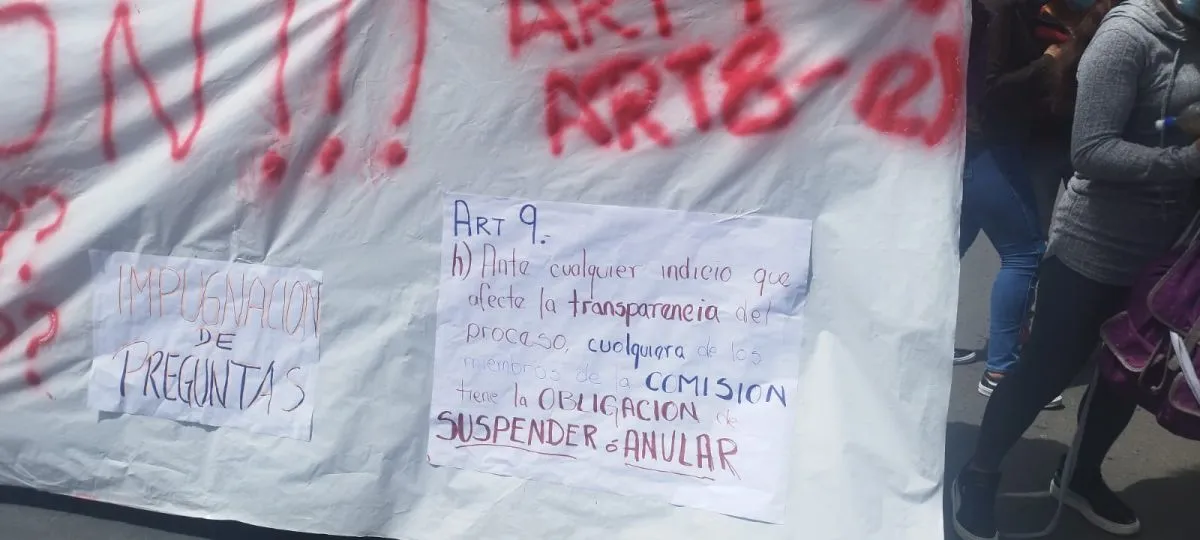 ON!!!
ART
ART8-e)
??
??
IMPUGNACION
DE
PREGUNTAS
ART 9.-
h) Ante cualquier indicio que
afecte la transparencia del
proceso, cualquiera de los
miembros de la COMISION
tiene la OBLIGACION de
SUSPENDER ó ANULAR